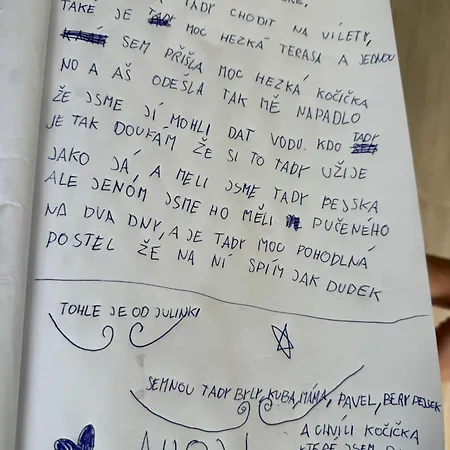 TADY CHODIT NA VÍLETY,
TAKÉ JE TADY MOC HEZKÁ TERASA A JEDNOU
SEM PŘIŠLA MOC HEZKÁ KOČIČKA
NO A AŠ ODEŠLA TAK MĚ NAPADLO
ŽE JSME JÍ MOHLI DAT VODU. KDO TADY
JE TAK DOUFÁM ŽE SI TO TADY UŽIJE
JAKO JÁ A MELI JSME TADY PEJSKA
ALE JENÓM JSME HO MĚLI PUČENÉHO
NA DVA DNY, A JE TADY MOC POHODLNÁ
POSTEL ŽE NA NÍ SPÍM JAK DUDEK
TOHLE JE OD JULINKI
SEMNOU TADY BYLY, KUBA, MÁMA, PAVEL, BERY PEJSEK
A CHVÍLI KOČIČKA
KTERÉ JSEM
AHOJ